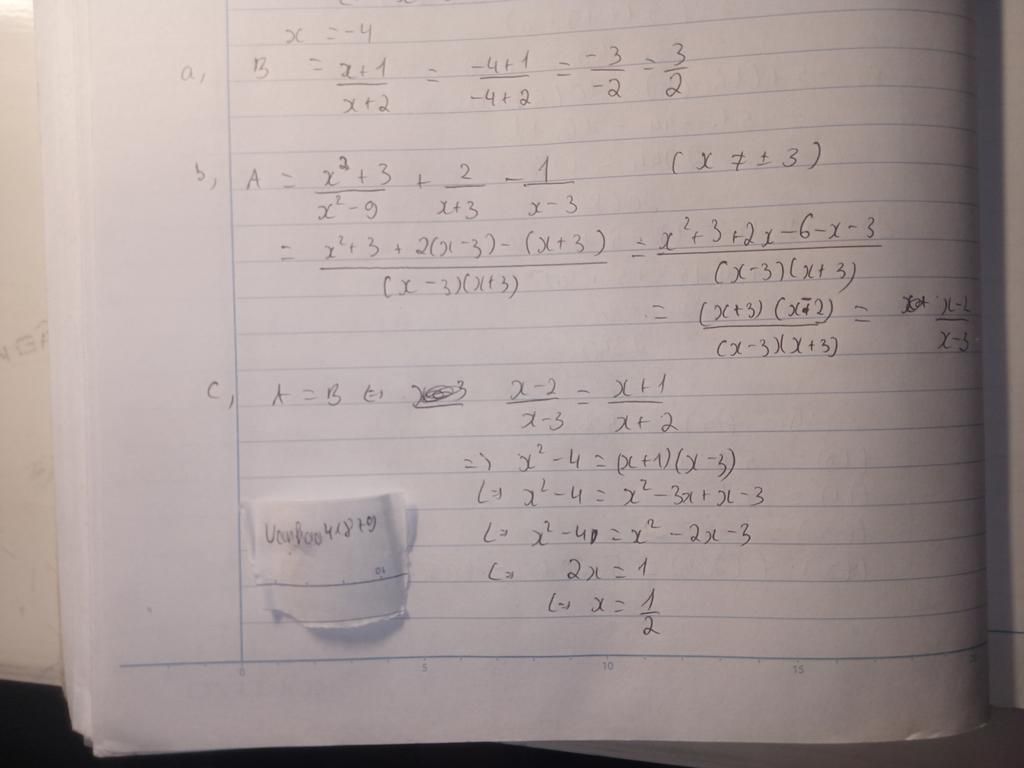 x = -4
a, B = \frac{x+1}{x+2} = \frac{-4+1}{-4+2} = \frac{-3}{-2} = \frac{3}{2}
b, A = \frac{x^2+3}{x^2-9} + \frac{2}{x+3} - \frac{1}{x-3} (x ≠ ± 3)
= \frac{x^2+3+2(x-3)-(x+3)}{(x-3)(x+3)} = \frac{x^2+3+2x-6-x-3}{(x-3)(x+3)}
= \frac{(x+3)(x-2)}{(x-3)(x+3)} = \frac{x-2}{x-3}
c, A = B ⇔ \frac{x-2}{x-3} = \frac{x+1}{x+2}
=> x^2-4 = (x+1)(x-3)
⇔ x^2-4 = x^2-3x+x-3
⇔ x^2-4 = x^2-2x-3
⇔ 2x = 1
⇔ x = \frac{1}{2}
01
0 5 10 15